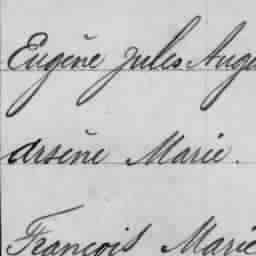 Eugène Jules Auge
Arsène Marie.
François Marie